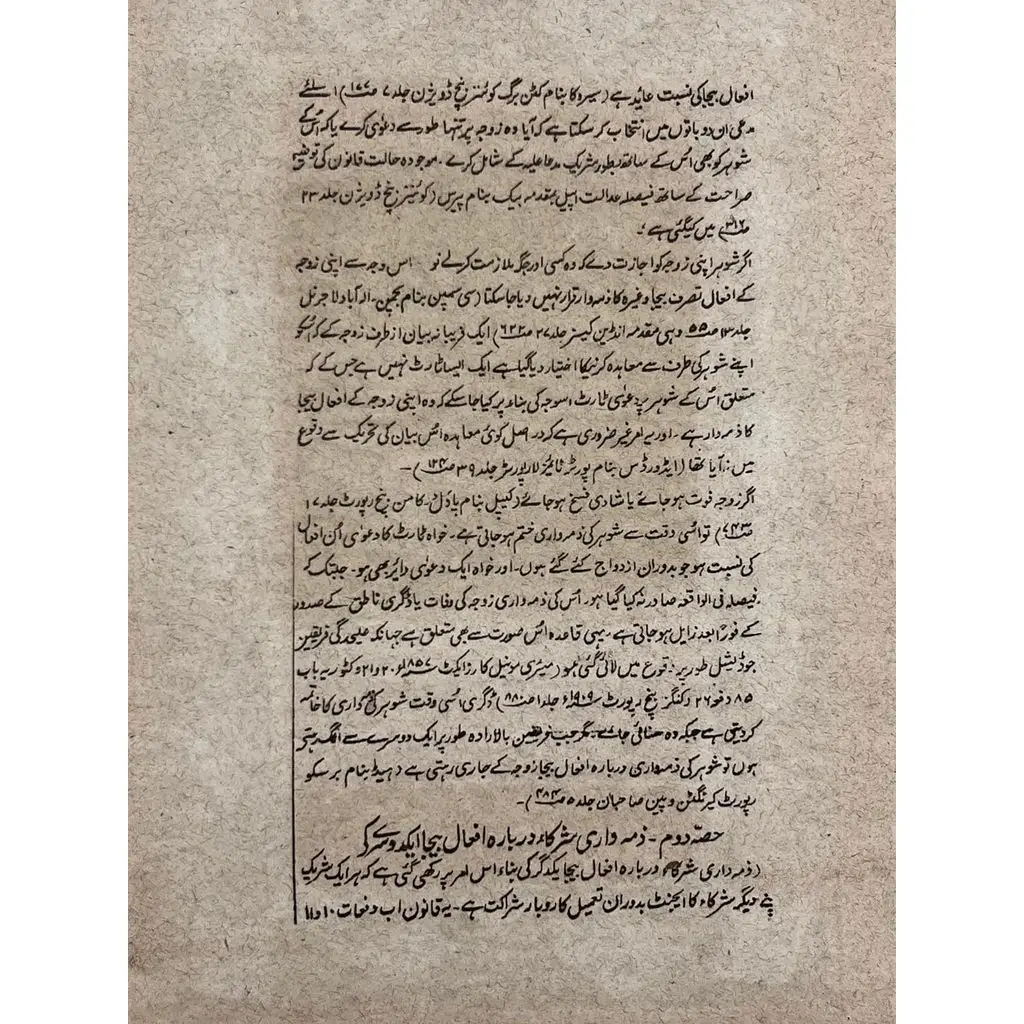 افعال بیجا کی نسبت عائد ہے (سیروکا بنام کٹن برگ کوئنز بنچ ڈویژن جلد ۷ صـ۱۷۷) اسلئے
مدعی ان دو باتوں میں انتخاب کر سکتا ہے کہ آیا وہ زوجہ پر تنہا طور سے دعویٰ کرے یا کہ اُسکے
شوہر کو بھی اُس کے ساتھ بطور شریک مدعا علیہ کے شامل کرے ۔ موجودہ حالت قانون کی توضیح
صراحت کے ساتھ فیصلہ عدالت اپیل بمقدمہ بیک بنام پرس (کوئنز بنچ ڈویژن جلد ۲۳
صـ۳۱۶) میں کیگئی ہے ؛
اگر شوہر اپنی زوجہ کو اجازت دے کہ وہ کسی اور جگہ ملازمت کرلے تو اس وجہ سے اپنی زوجہ
کے افعال تصرف بیجا وغیرہ کا ذمہ دار قرار نہیں دیا جا سکتا (سی سمپن بنام بچپن ۔ الہ آباد لا جرنل
جلد ۱۳ صـ۵۵ وہی مقدمہ انڈین کیسز جلد ۲۷ صـ۶۲۲) ایک فریبانہ بیان از طرف زوجہ کے کہ اُسکو
اپنے شوہر کی طرف سے معاہدہ کرنیکا اختیار دیا گیا ہے ایک ایسا ٹارٹ نہیں ہے جس کے کہ
متعلق اُس کے شوہر پر دعویٰ ٹارٹ اسوجہ کی بناء پر کیا جا سکے کہ وہ اپنی زوجہ کے افعال بیجا
کا ذمہ دار ہے ۔ اور یہ امر غیر ضروری ہے کہ در اصل کوئی معاہدہ اُس بیان کی تحریک سے وقوع
میں نہ آیا تھا (ایڈورڈس بنام پورٹر ٹائمز لا رپورٹر جلد ۳۹ صـ۱۲۴) ۔
اگر زوجہ فوت ہو جائے یا شادی فسخ ہو جائے (کیپل بنام پاؤل ۔ کامن بنچ رپورٹ جلد ۱۷
صـ۷۴۳) تو اُسی وقت سے شوہر کی ذمہ داری ختم ہو جاتی ہے ۔ خواہ ٹارٹ کا دعویٰ اُن افعال
کی نسبت ہو جو بدوران ازدواج کئے گئے ہوں ۔ اور خواہ ایک دعویٰ دائر بھی ہو ۔ جبتک کہ
فیصلہ فی الواقعہ صادر نہ کیا گیا ہو ۔ اُس کی ذمہ داری زوجہ کی وفات یا ڈگری ناطق کے صدور
کے فوراً بعد زایل ہو جاتی ہے ۔ یہی قاعدہ اُس صورت سے بھی متعلق ہے جہانکہ علیحدگی فریقین
جوڈیشل طور پر وقوع میں لائی گئی ہو (میٹری مونیل کازز ایکٹ سنہ ۱۸۵۷ء ۲۰ و ۲۱ وکٹوریہ باب
۸۵ دفعہ ۲۶ (کنگز بنچ رپورٹ سنہ ۱۹۰۹ء جلد ۱ صـ۸۸) ڈگری اُسی وقت شوہر کی ذمہ داری کا خاتمہ
کر دیتی ہے جبکہ وہ سنائی جائے ۔ مگر جب فریقین بالارادہ طور پر ایک دوسرے سے الگ رہتے
ہوں تو شوہر کی ذمہ داری دربارہ افعال بیجا زوجہ کے جاری رہتی ہے (ہیڈ بنام برسکو
رپورٹ کیرنگٹن و پین صاحبان جلد ۵ صـ۴۸۴) ۔
حصہ دوم ۔ ذمہ داری شرکاء دربارہ افعال بیجا ایکدوسرے کے
(ذمہ داری شرکاء دربارہ افعال بیجا یکدگر کی بناء اس امر پر رکھی گئی ہے کہ ہر ایک شریک
اپنے دیگر شرکاء کا ایجنٹ بدوران تعمیل کاروبار شراکت ہے ۔ یہ قانون اب دفعات ۱۰ و ۱۱